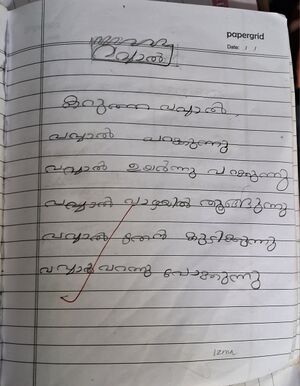 papergrid
Date: / /
വവ്വാൽ
കറുത്ത വവ്വാൽ,
വവ്വാൽ പറക്കുന്നു
വവ്വാൽ ഉയർന്നു പറക്കുന്നു
വവ്വാൽ വാഴയിൽ തൂങ്ങുന്നു
വവ്വാൽ തേൻ കുടിക്കുന്നു
വവ്വാൽ പറന്നു പോകുന്നു
Izma